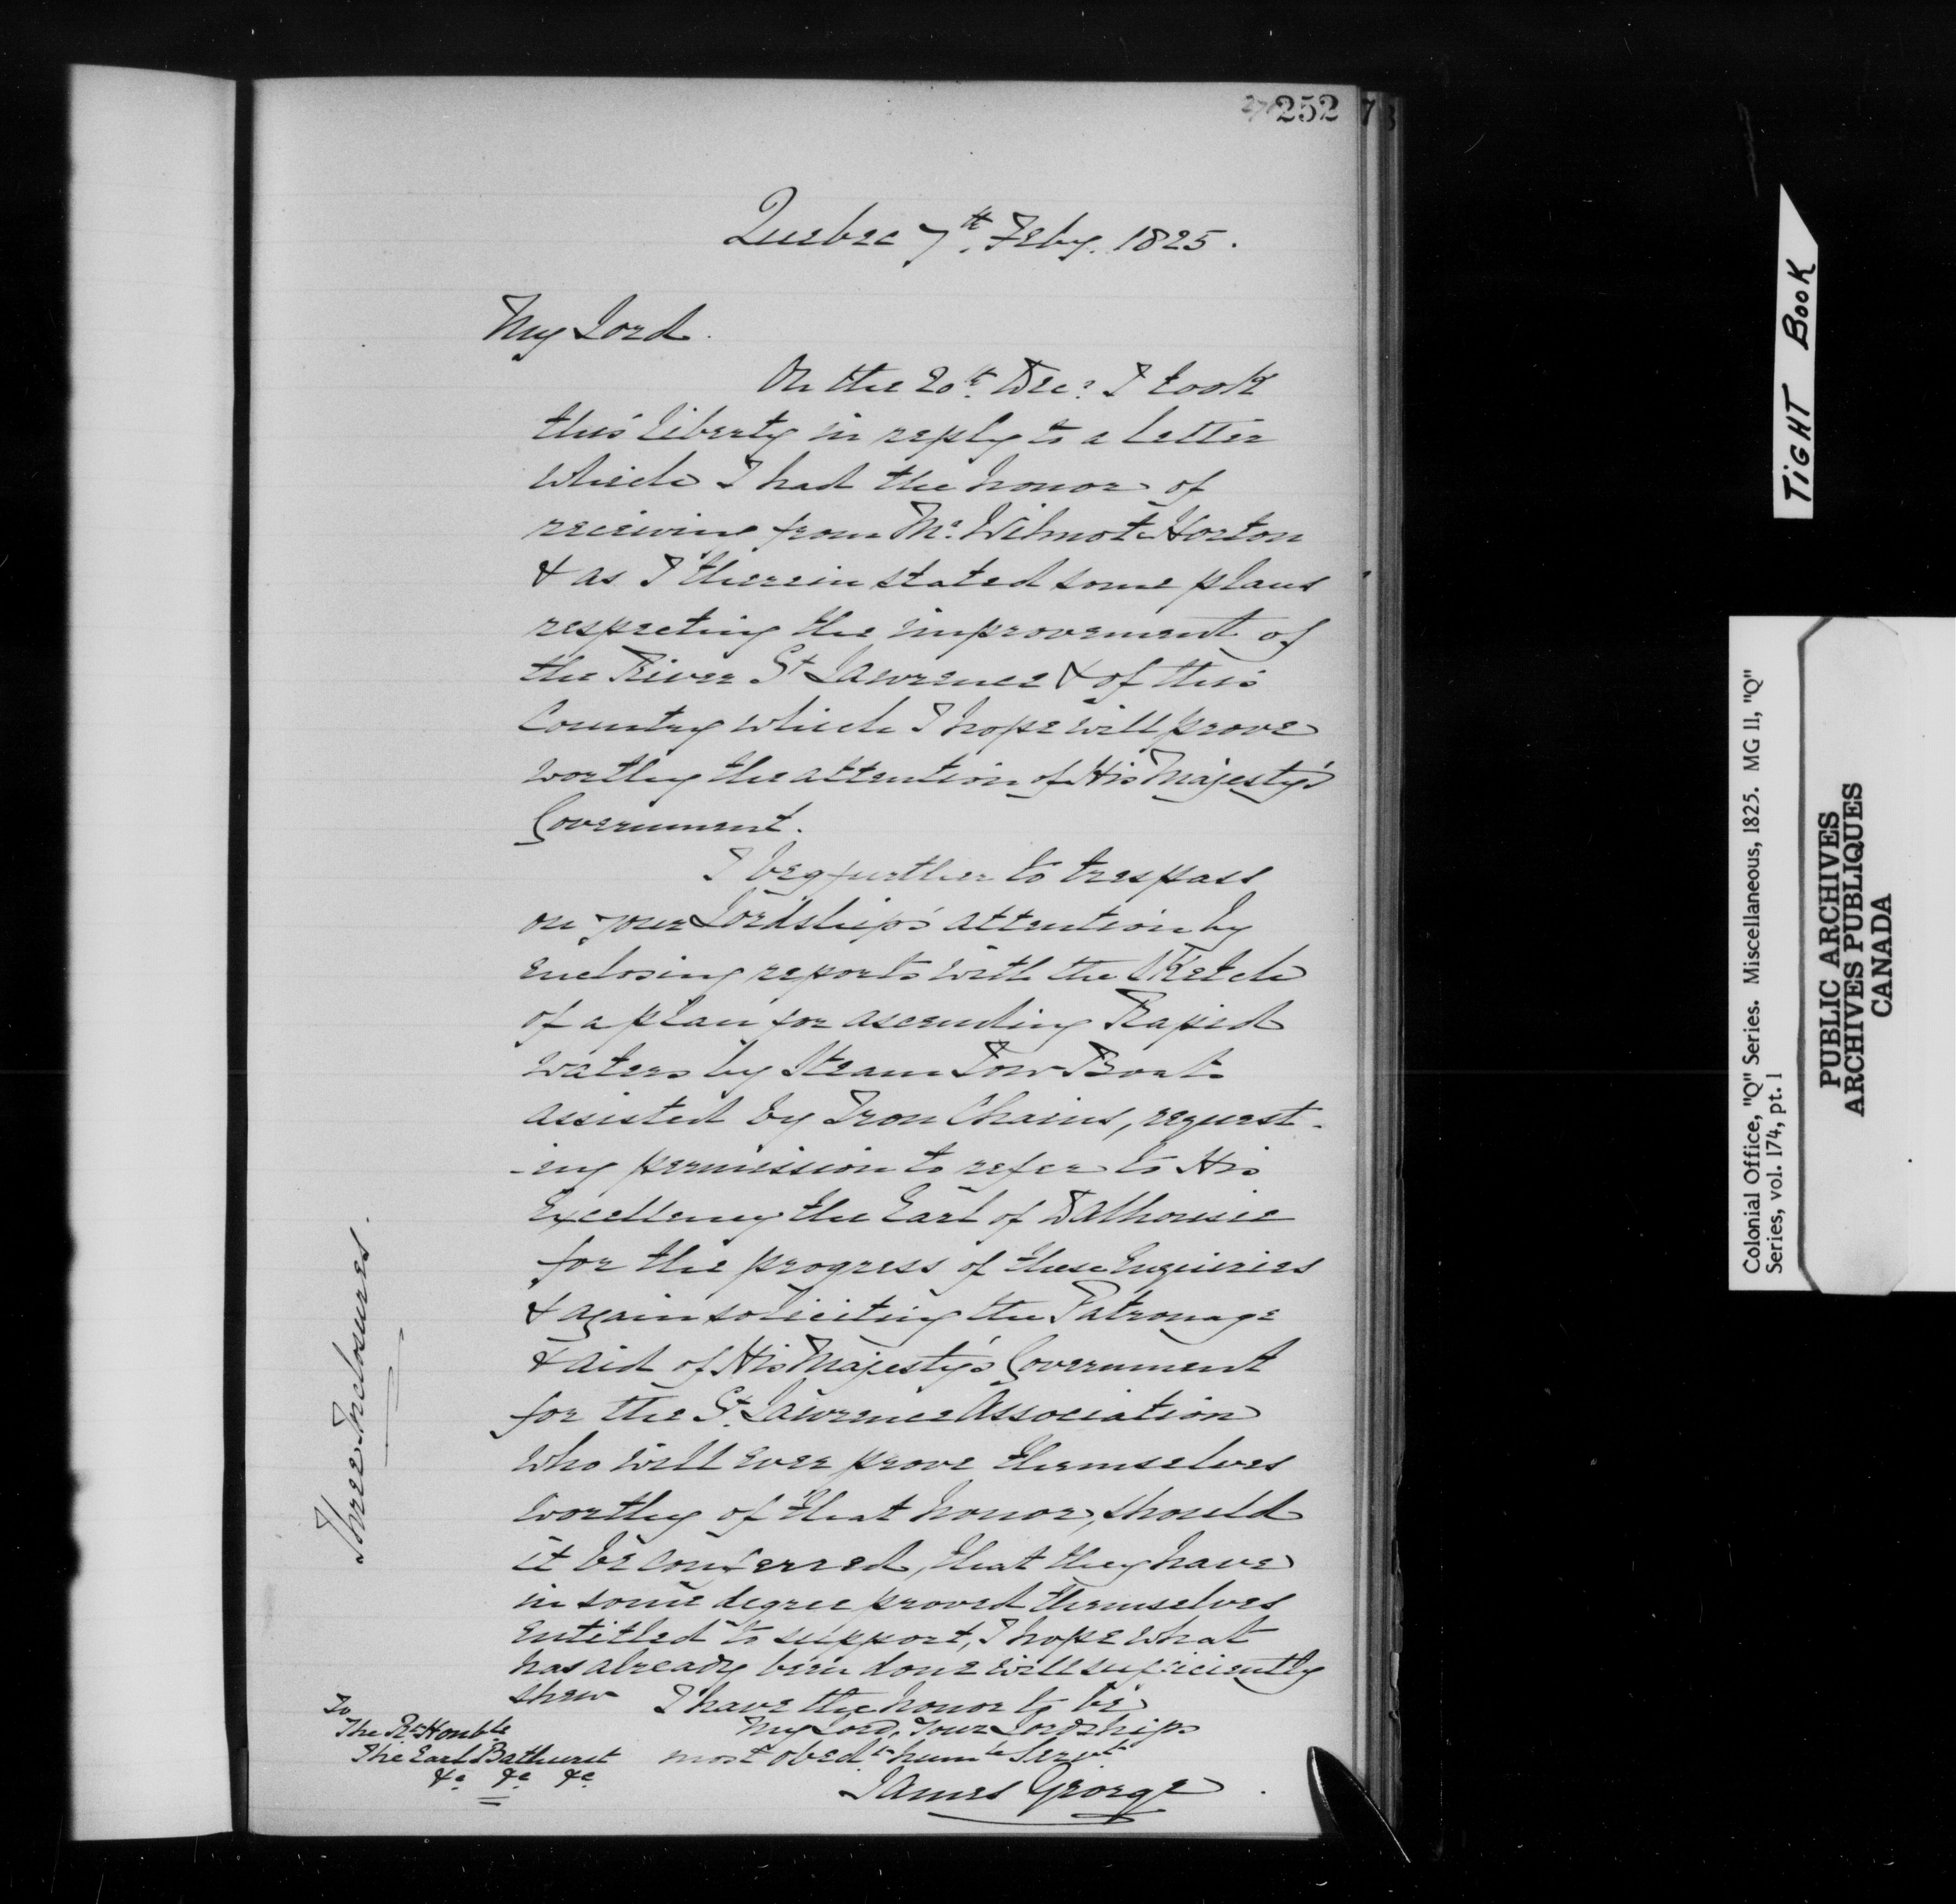 252
Quebec 7th. Feby. 1825.
My Lord.
On the 20th. Decr. I took
this liberty in reply to a letter
which I had the honor of
receiving from Mr. Wilmot Horton
& as I therein stated some plans
respecting the improvement of
the River St Lawrence & of this
Country which I hope will prove
worthy the attention of His Majesty's
Government.
I beg further to trespass
on your Lordship's attention by
enclosing reports with the Sketch
of a plan for ascending Rapid
waters by Steam Tow Boats
assisted by Iron Chains, request-
-ing permission to refer to His
Excellency the Earl of Dalhousie
for the progress of these Enquiries
& again soliciting the Patronage
& aid of His Majesty's Government
for the St. Lawrence Association
who will ever prove themselves
worthy of that honor, should
it be conferred, that they have
in some degree proved themselves
entitled to support, I hope what
has already been done will sufficiently
shew I have the honor to be
My Lord, Your Lordships
most obedt. humle Servt
James George
To
The Rt. Honble
The Earl Bathurst
&c &c &c
Three Inclosures.
TIGHT BOOK
Colonial Office, "Q" Series. Miscellaneous, 1825. MG 11, "Q"
Series, vol. 174, pt. 1
PUBLIC ARCHIVES
ARCHIVES PUBLIQUES
CANADA